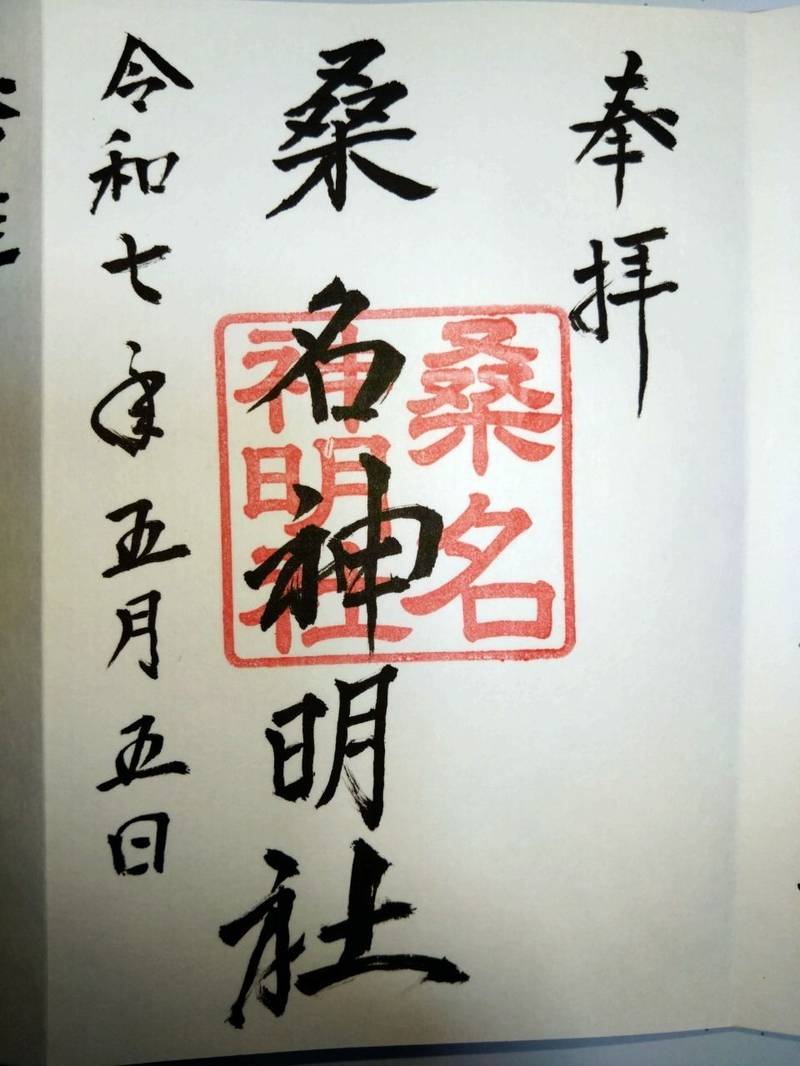 奉拝
桑名神明社
令和七年五月五日
桑名
神明社